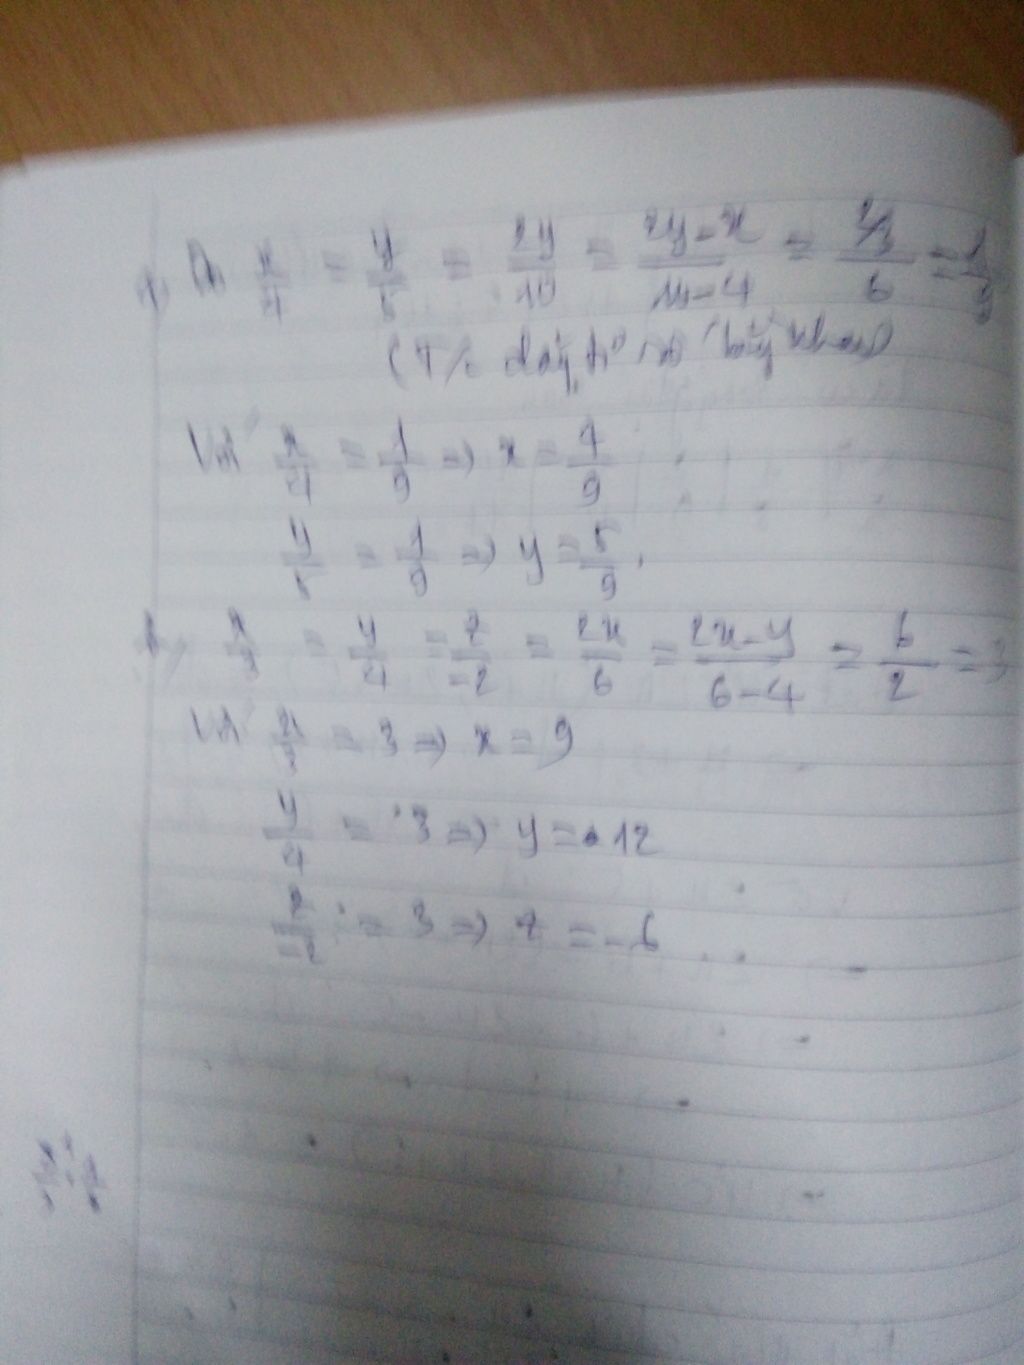 a, Có x/4 = y/5 = 2y/10 = 2y-x/10-4 = 2/3/6 = 1/9
(T/c dãy tỉ số bằng nhau)
Với x/4 = 1/9 => x = 4/9
y/5 = 1/9 => y = 5/9.
b, x/3 = y/4 = z/-2 = 2x/6 = 2x-y/6-4 = 6/2 = 3
Với x/3 = 3 => x = 9
y/4 = 3 => y = 12
z/-2 = 3 => z = -6